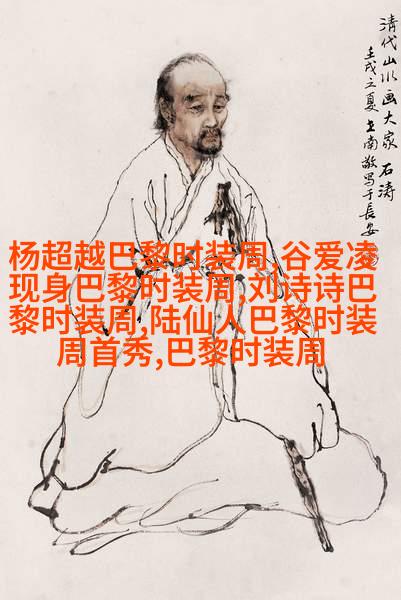 清代山水画大家 石涛
壬戌之夏 王南敬写于长安
杨超越巴黎时装周,谷爱凌
现身巴黎时装周,刘诗诗巴
黎时装周,陆仙人巴黎时装
周首秀,巴黎时装周